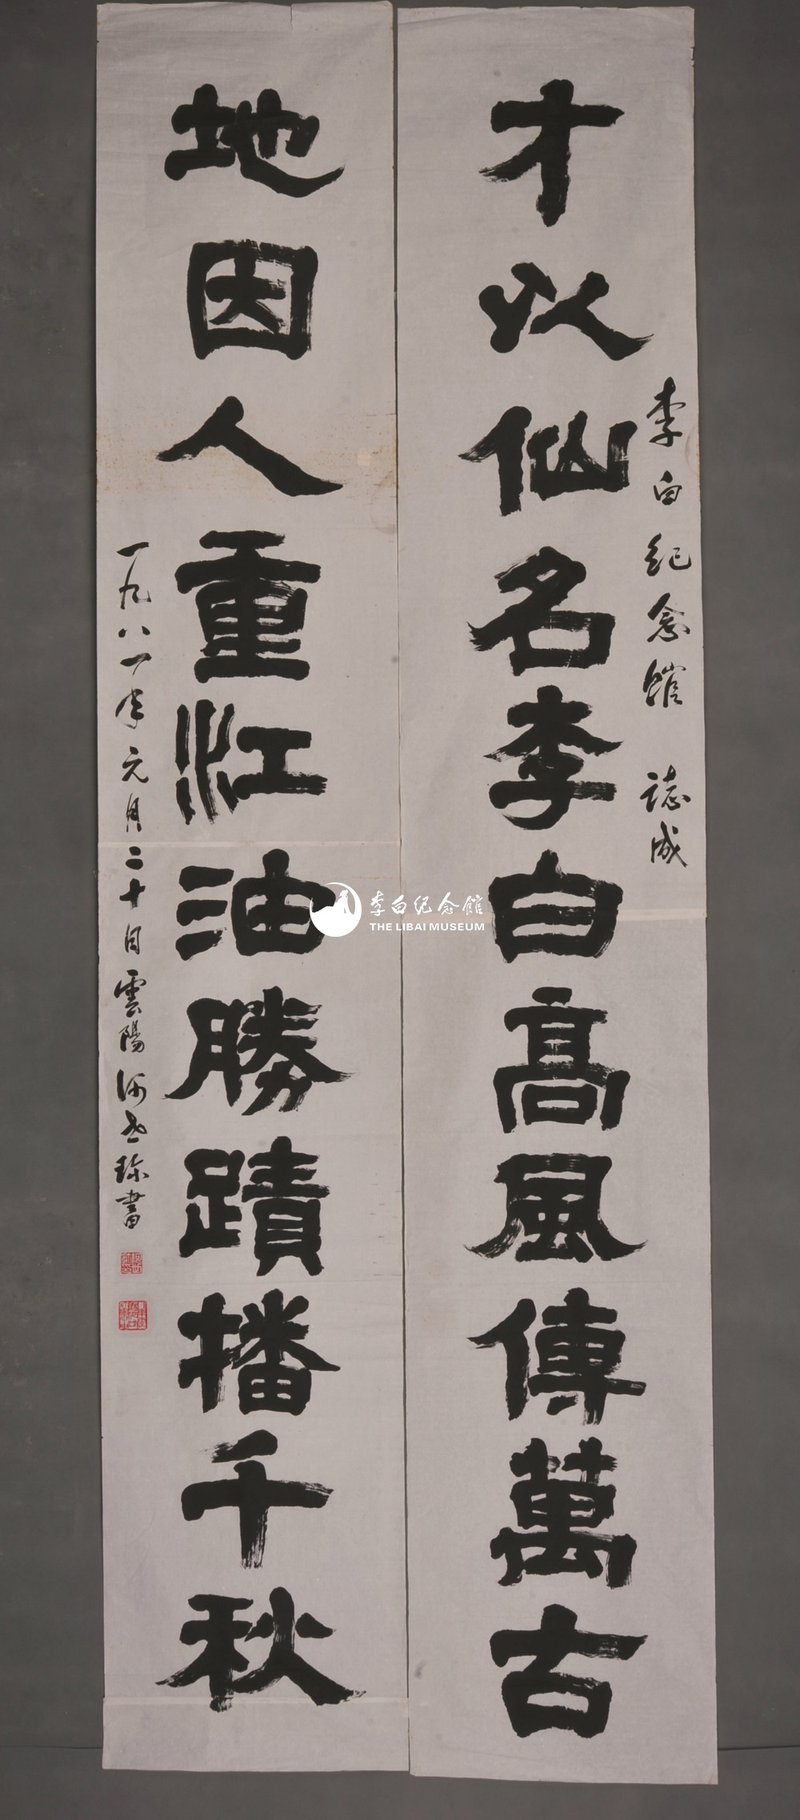 李白紀念館 誌成
才以仙名李白高風傳萬古
地因人重江油勝蹟播千秋
一九八一年元月二十日雲陽
書
李白纪念館
THE LIBAI MUSEUM